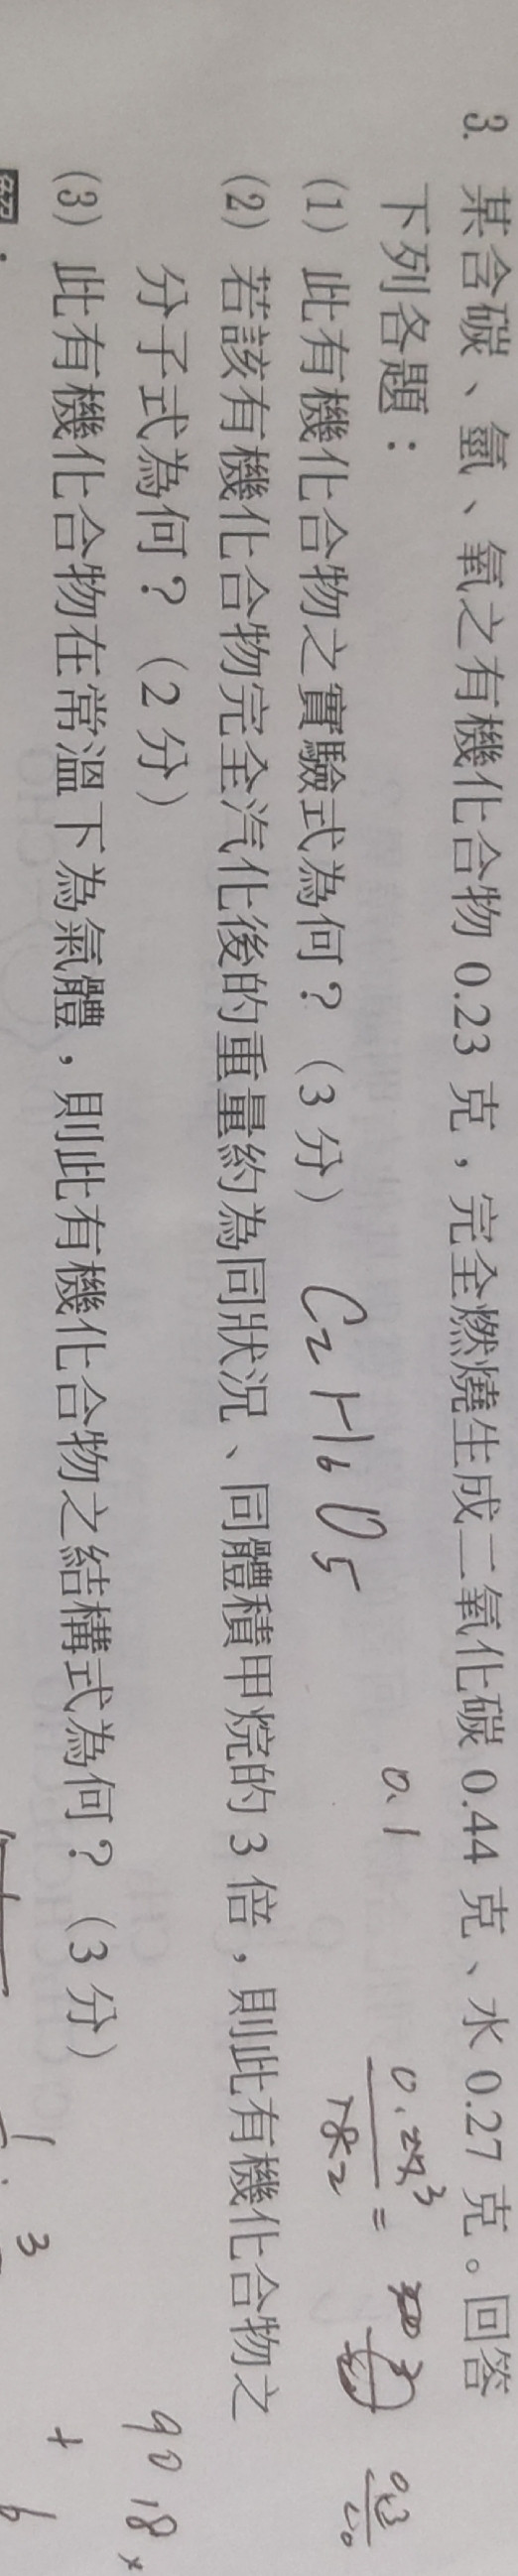 3. 某含碳、氫、氧之有機化合物 0.23 克，完全燃燒生成二氧化碳 0.44 克、水 0.27 克。回答
下列各題：
0.1
(1) 此有機化合物之實驗式為何？（3 分） C2H6O5
(2) 若該有機化合物完全汽化後的重量約為同狀況、同體積甲烷的 3 倍，則此有機化合物之
分子式為何？（2 分）
90 18
(3) 此有機化合物在常溫下為氣體，則此有機化合物之結構式為何？（3 分）